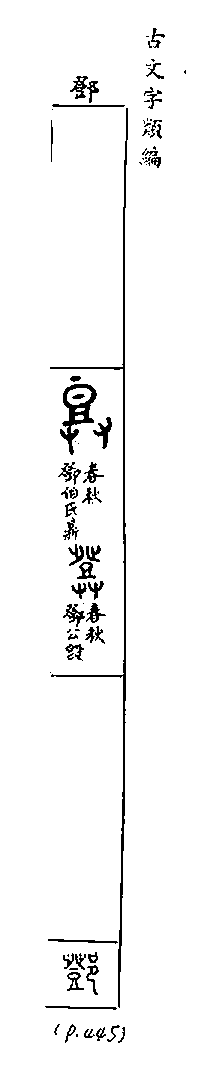 古文字類編
鄧
春秋
鄧伯氏鼎
春秋
鄧公𣪘
鄧
(p.445)